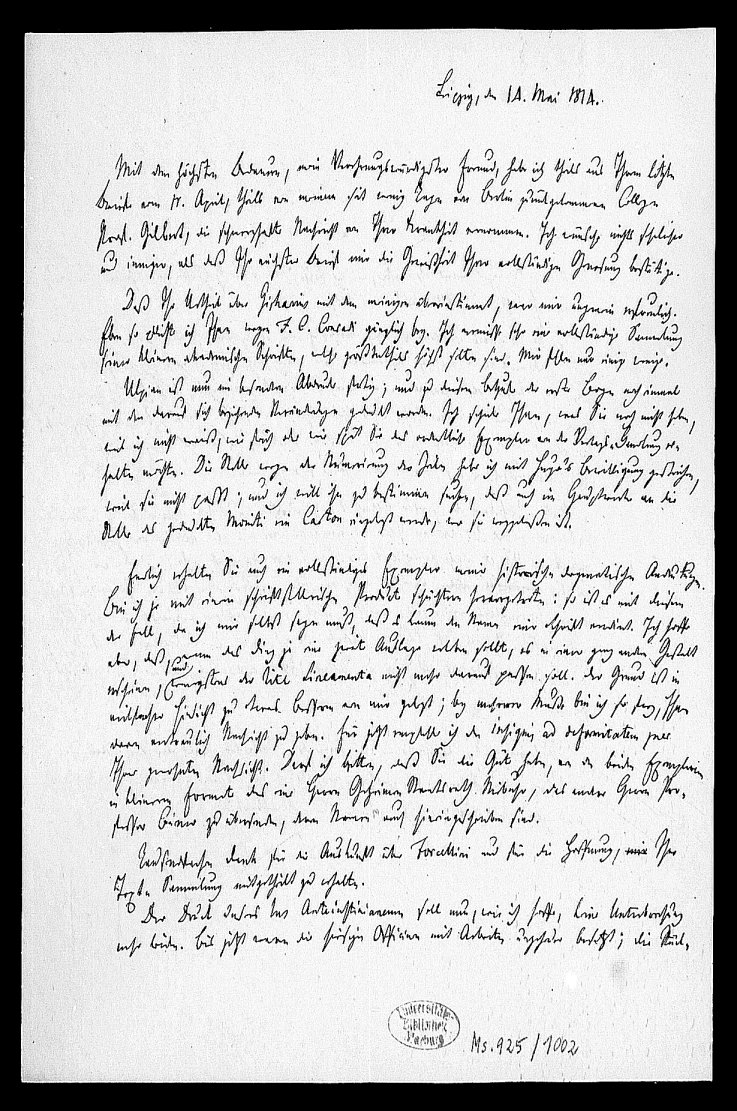 Leipzig, den 14. Mai 1814.
Mit dem höchsten Bedauern, mein Verehrungswürdigster Freund, habe ich theils aus Ihrem letzten
Briefe vom 17. April, theils von meinem seit wenig Tagen von Berlin zurückgekommenen Collegen
Prof. Gilbert, die schmerzhafte Nachricht von Ihrer Krankheit vernommen. Ich wünsche nichts sehnlicher
und inniger, als daß Ihr nächster Brief mir die Gewißheit Ihrer vollständigen Genesung bestätige.
Daß Ihr Urtheil über mit dem meinigen übereinstimmt, war mir ungemein erfreulich.
Eben so pflichte ich Ihnen wegen F. C. Conradi gänzlich bey. Ich vermisse sehr eine vollständige Sammlung
seiner kleinern akademischen Schriften, welche größtentheils höchst selten sind. Mir fehlen nur einige wenige.
Ulpian ist nun im besondern Abdrucke fertig; und zu diesem Behufe der erste Bogen noch einmal
mit den darauf sich beziehenden Veränderungen gedruckt worden. Ich schicke Ihnen, was Sie noch nicht haben,
weil ich nicht weiß, wie früh oder wie spät Sie das ordentliche Exemplar von der Verlags-Handlung er-
halten möchten. Die Stelle wegen der Numerirung der habe ich mit Hugo's Bewilligung gestrichen,
weil sie nicht paßt; und ich will ihn zu bestimmen suchen, daß auch im an die
Stelle des gedruckten Moniti ein Carton eingelegt werde, wo sie weggelassen ist.
Endlich erhalten Sie auch ein vollständiges Exemplar meiner historisch dogmatischen
Bin ich je mit einem schriftstellerischen Produkt schüchtern hervorgetreten: so ist es mit diesem
der Fall, da ich mir selbst sagen muß, daß es kaum den Namen einer Schrift verdient. Ich hoffe
aber, daß, wenn das Ding je eine zweite Auflage erleben sollte, es in einer ganz andern Gestalt
erscheinen, und wenigstens der Titel Lineamenta nicht mehr darauf passen soll. Der Grund ist in
mehrfacher Hinsicht zu etwas Besserem von mir gelegt; bey mehrerer Muße bin ich so frey, Ihnen
davon vertraulich Nachricht zu geben. Für jetzt empfehle ich den insignem ad deformitatem puer
Ihrer gewohnten Nachsicht. Darf ich bitten, daß Sie die Güte haben, von den beiden Exemplarien
in kleinerem Format das eine Herrn Geheimen Staatsrath Niebuhr, das andere Herrn Pro-
fessor Biener zu übersenden, deren Namen auch hineingeschrieben sind.
Tausendfachen Dank für die Auskunft über Torcellini und für die Hoffnung, Ihre
Sammlung mitgetheilt zu erhalten.
Der Druck des Ius Anteiustinianeum soll nun, wie ich hoffe, keine Unterbrechung
mehr leiden. Bis jetzt waren die hiesigen Officinen mit Arbeiten ungeheuer besetzt; die
Universitäts-
Bibliothek
Marburg
Ms. 925/1002